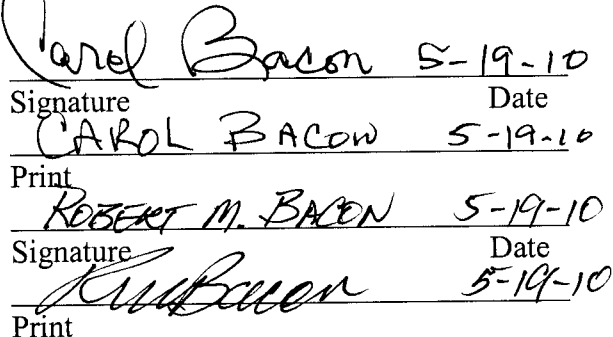 Carol Bacon 5-19-10
Signature Date
CAROL BACON 5-19-10
Print
ROBERT M. BACON 5-19-10
Signature Date
RM Bacon 5-19-10
Print